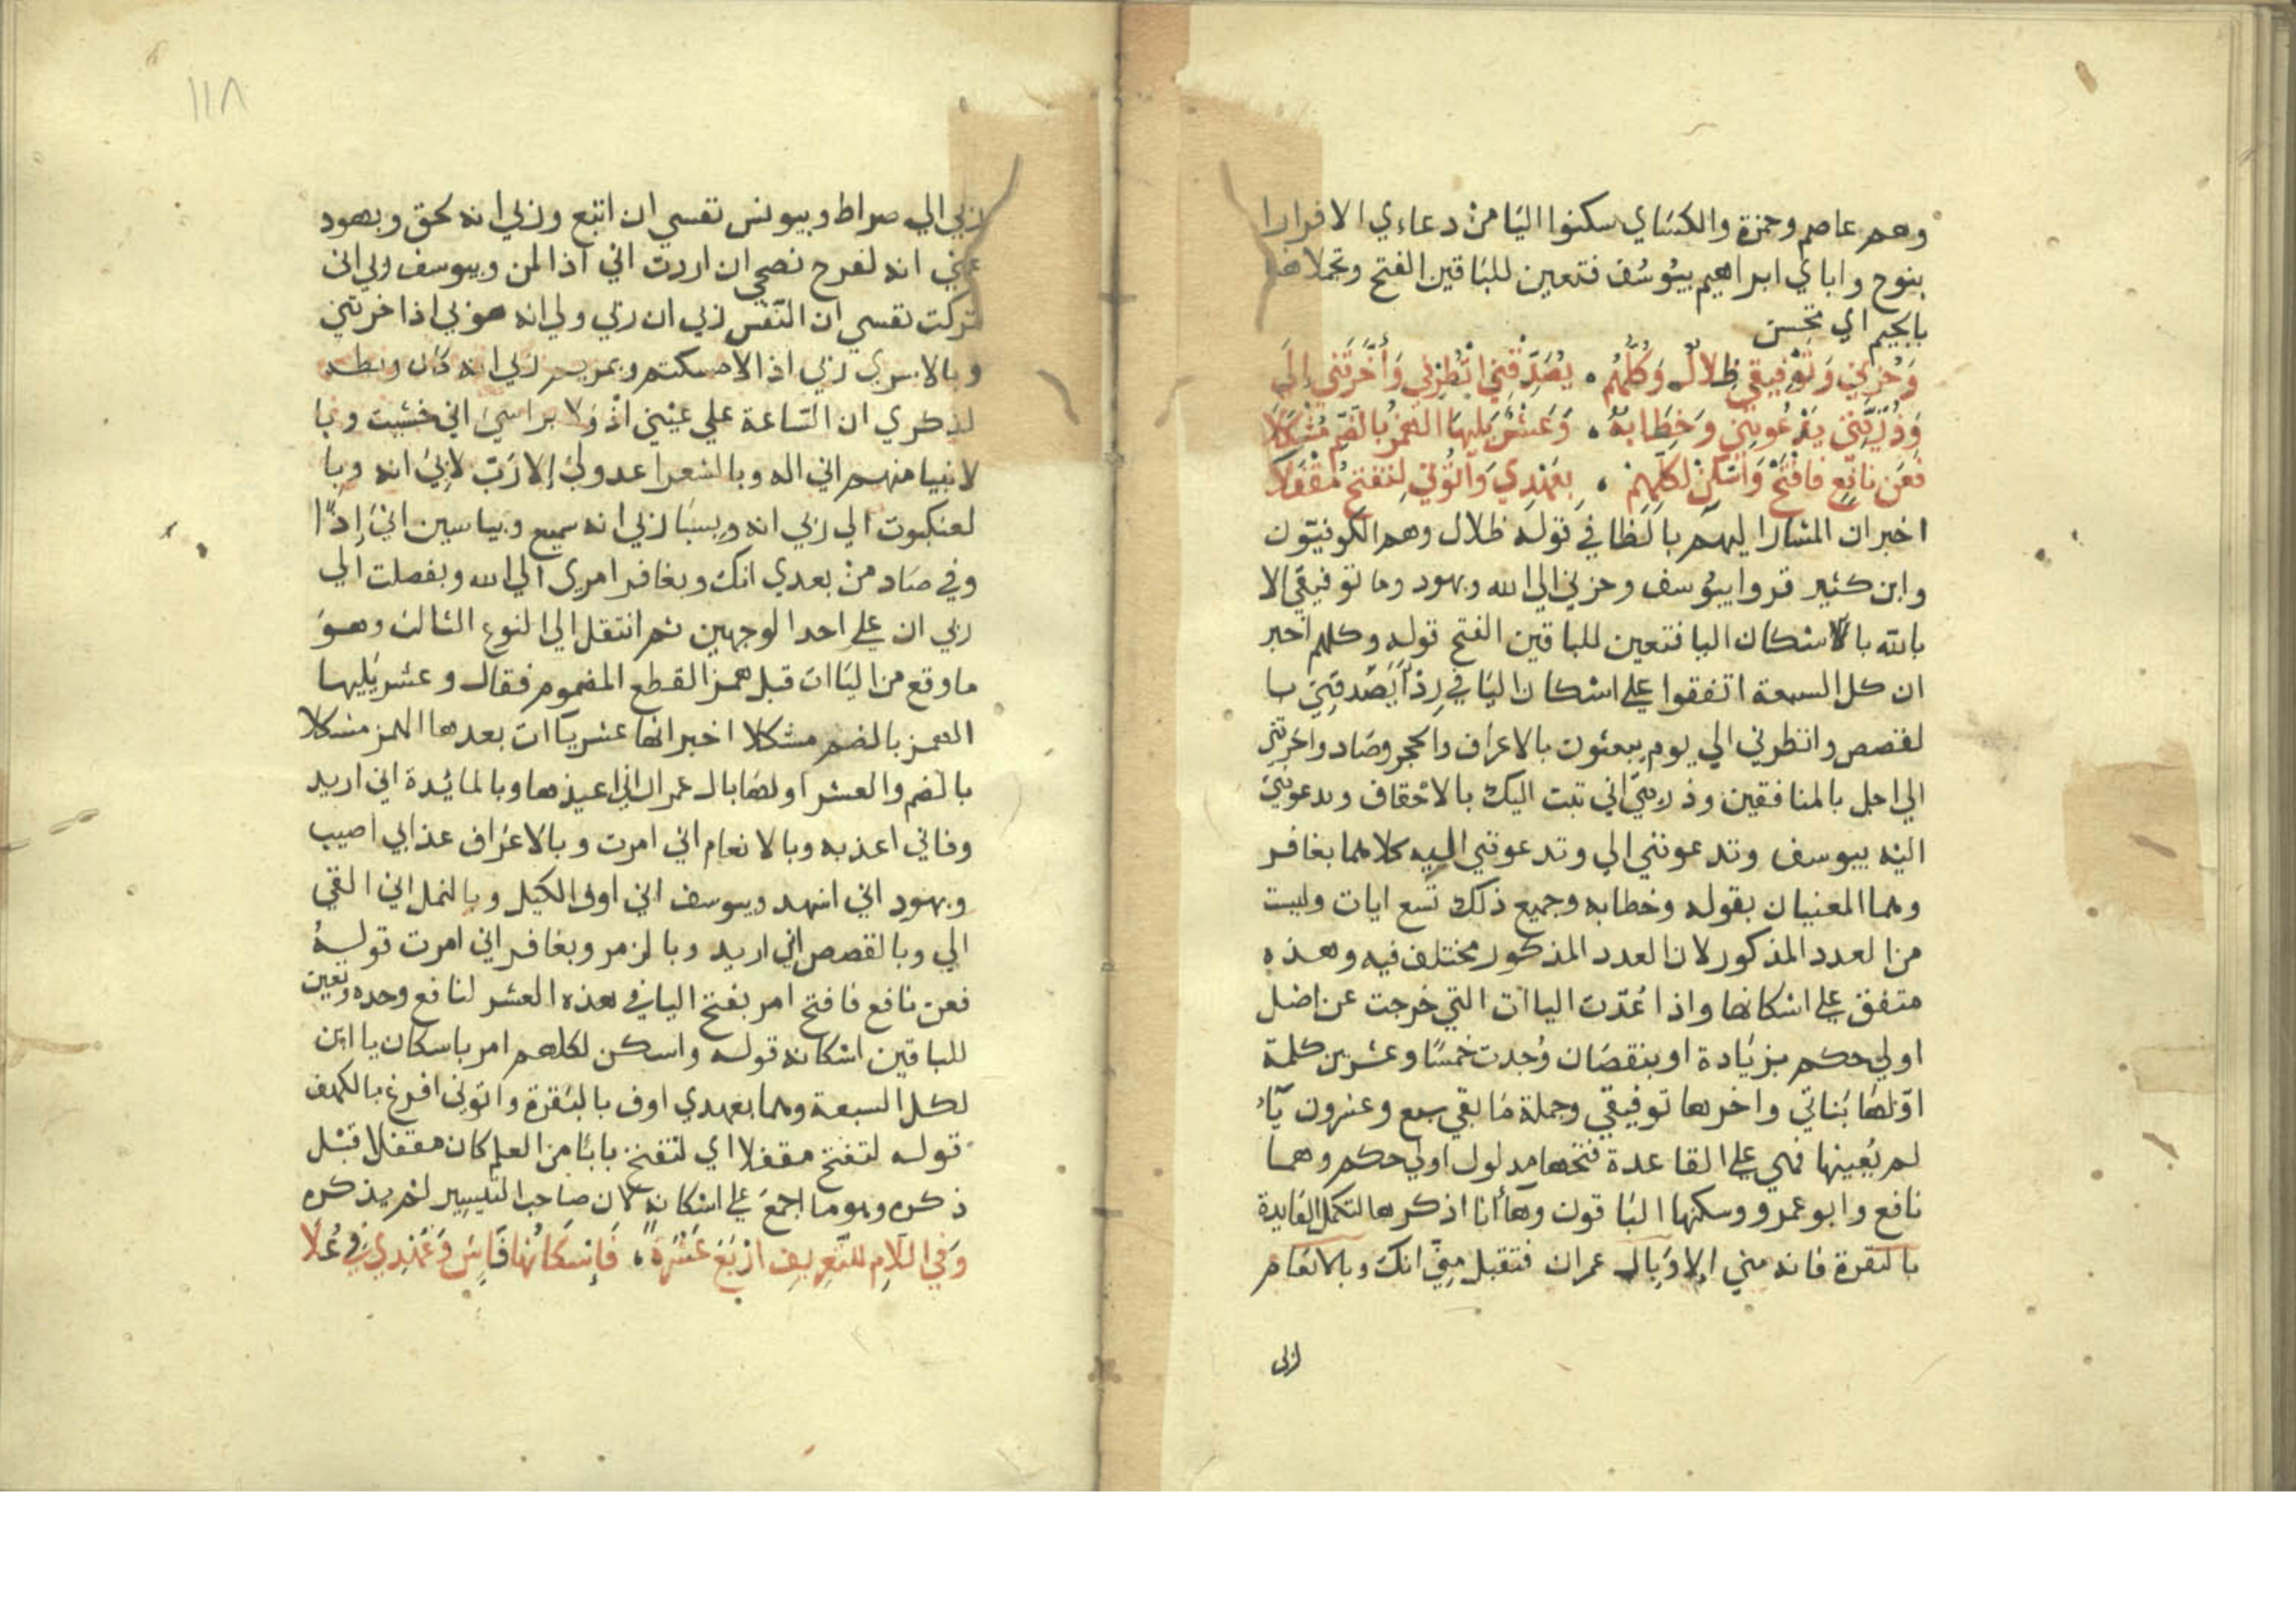 وهم عاصم وحمزة والكساي سكنوا اليا من دعاءي الا فرارا
بنوح واباي ابراهيم بيوسف فتعين للباقين الفتح وتجملا هنا
بالجيم اي تحسن
وَحُزْنِي وَتَوْفِيقِي ظِلَالٌ وَكُلُّهُمْ . يُصَدِّقْنِي انْظِرْنِي وَأَخَّرْتَنِي إِلَى
وَذُرِّيَّتِي يَدْعُونَنِي وَخِطَابُهُ . وَعَشْرٌ يَلِيهَا الهَمْزُ بِالضَّمِّ مُشْكَلَا
فَعَنْ نَافِعٍ فَافْتَحْ وَأَسْكِنْ لِكُلِّهِمْ . بِعَهْدِي وَآتُونِي لِتَفْتَحَ مُقْفَلَا
اخبر ان المشار اليهم بالظا في قوله ظلال وهم الكوفيون
وابن كثير قروا بيوسف وحزني الي الله وبهود وما توفيقي الا
بالله بالاسكان اليا فتعين للباقين الفتح قوله وكلهم اخبر
ان كل السبعة اتفقوا علي اسكان اليا في ردا يصدقني با
لقصص وانظرني الي يوم يبعثون بالاعراف والحجر وصاد واخرتني
الي اجل بالمنافقين وذريتي اني تبت اليك بالاحقاف ويدعونني
اليه بيوسف وتدعونني الي وتدعونني اليه كلاهما بغافر
وهما المعنيان بقوله وخطابه وجميع ذلك تسع ايات وليست
من العدد المذكور لان العدد المذكور مختلف فيه وهذه
متفق علي اسكانها واذا عُدّت الياات التي خرجت عن اصل
اولي حكم بزيادة او بنقصان وُجدت خمسًا وعشرين كلمة
اوّلها بناتي واخرها توفيقي وجملة ما بقي سبع وعشرون ياء
لم يُعينها فهي علي القاعدة فتحها مدلول اولي حكم وهما
نافع وابو عمرو وسكنها الباقون وها أنا اذكرها لتكمل الفايدة
بالبقرة فانه مني الا وبال عمران فتقبل مني انك وبالانعام
ربي
١١٨
ربي الي صراط وبيونس نفسي ان اتبع وربي انه لحق وبهود
عني انه لفرح نصحي ان اردت اني اذا لمن وبيوسف ربي اني
تركت نفسي ان النفس ربي ان ربي ولي انه هو بي اذا خرتني
وبالاسري ربي اذا لامسكتم وبمريم ربي انه كان وبطه
لذكري ان الساعة علي عيني اذ ولا براسي اني خشيت وبا
لانبيا منهم اني اله وبالشعرا عدولي إلا رب لابي انه وبا
لعنكبوت الي ربي انه وبسبا ربي انه سميع وبياسين اني إذا
وفي صاد من بعدي انك وبغافر امري الي الله وبفصلت الي
ربي ان علي احد الوجهين ثم انتقل الي النوع الثالث وهو
ما وقع من الياات قبل همز القطع المضموم فقال وعشر يليها
الهمز بالضم مشكلا اخبر انها عشر ياات بعدها الهمز مشكلا
بالضم والعشر اولها بال عمران اني اعيذها وبالمائدة اني اريد
وفاني اعذبه وبالانعام اني امرت وبالاعراف عذابي اصيب
وبهود اني اشهد وبيوسف اني اوف الكيل وبالنمل اني القي
الي وبالقصص اني اريد وبالزمر وبغافر اني امرت قوله
فعن نافع فافتح امر بفتح اليا في هذه العشر لنافع وحده وتعين
للباقين اسكانه قوله واسكن لكلهم امر باسكان يا اين
لكل السبعة وهما بعهدي اوف بالبقرة واتوني افرغ بالكهف
قوله لتفتح مقفلا اي لتفتح بابًا من العلم كان مقفلا قبل
ذكره وهو ما اجمع علي اسكانه لان صاحب التيسير لم يذكره
وَفِي اللَّامِ لِلتَّعْرِيفِ ارْبَعُ عَشْرَةٍ ، فَإِسْكَانُهَا فَاشٍ وَعَهْدِيَ فِي عُلَا